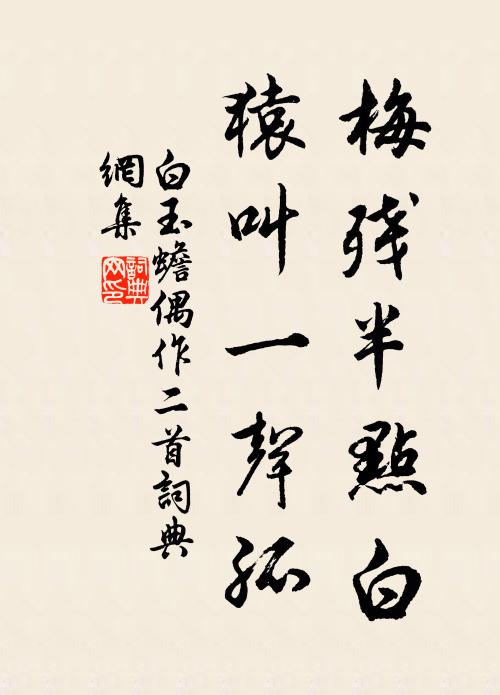 梅残半點白
猿叫一聲孤
白玉蟾偶作二首詞典
網集
詞典
网印